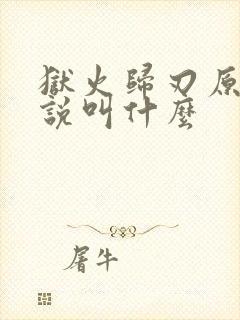 獄火歸刃原
說叫什麼
屠牛